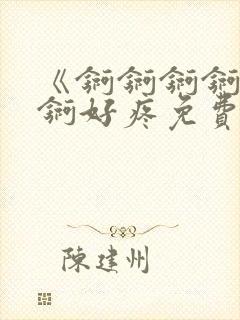 《錒錒錒錒
錒好疼免費
陳建州